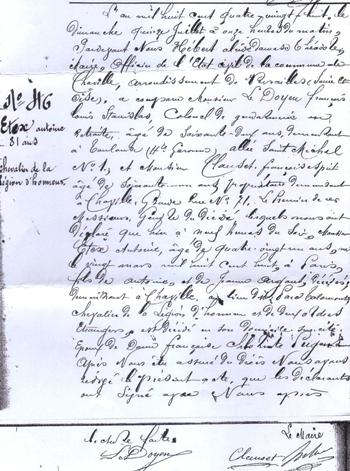 L'an mil huit cent quatre-vingt huit, le
Dimanche quinze Juillet à onze heures du matin,
Pardevant Nous Hébert
Maire, Officier de l'Etat civil de la commune de
Chaville, arrondissement de Versailles, Seine et
Oise, a comparu Monsieur Le Doyen François
Louis Stanislas, Colonel de gendarmerie en
retraite, âgé de Soixante-neuf ans, demeurant
à Toulouse (Hte Garonne), allée Saint Michel
No 1, et Monsieur Clauset, François esprit
âgé de Soixante ans, demeurant
à Chaville, Grande Rue No 71. Le premier de ces
Messieurs, Gendre du Décédé, lesquels nous ont
déclaré que hier à neuf heures du Soir, Monsieur
Etex Antoine, âgé de quatre-vingt un ans, né
le vingt mars mil huit cent huit, à Paris,
fils de Antoine, et de Jeanne décédés,
demeurant à Chaville,
Chevalier de la Légion d'honneur et de Ordres
Etrangers, est décédé en son Domicile
Epoux de Dame Françoise
Après Nous être assuré du décès Nous avons
rédigé le présent acte, que les déclarants
ont Signé avec Nous après
No 46
Etex antoine
81 ans
Chevalier de la
légion d'honneur
Le Maire
L. Doyen
Clauset